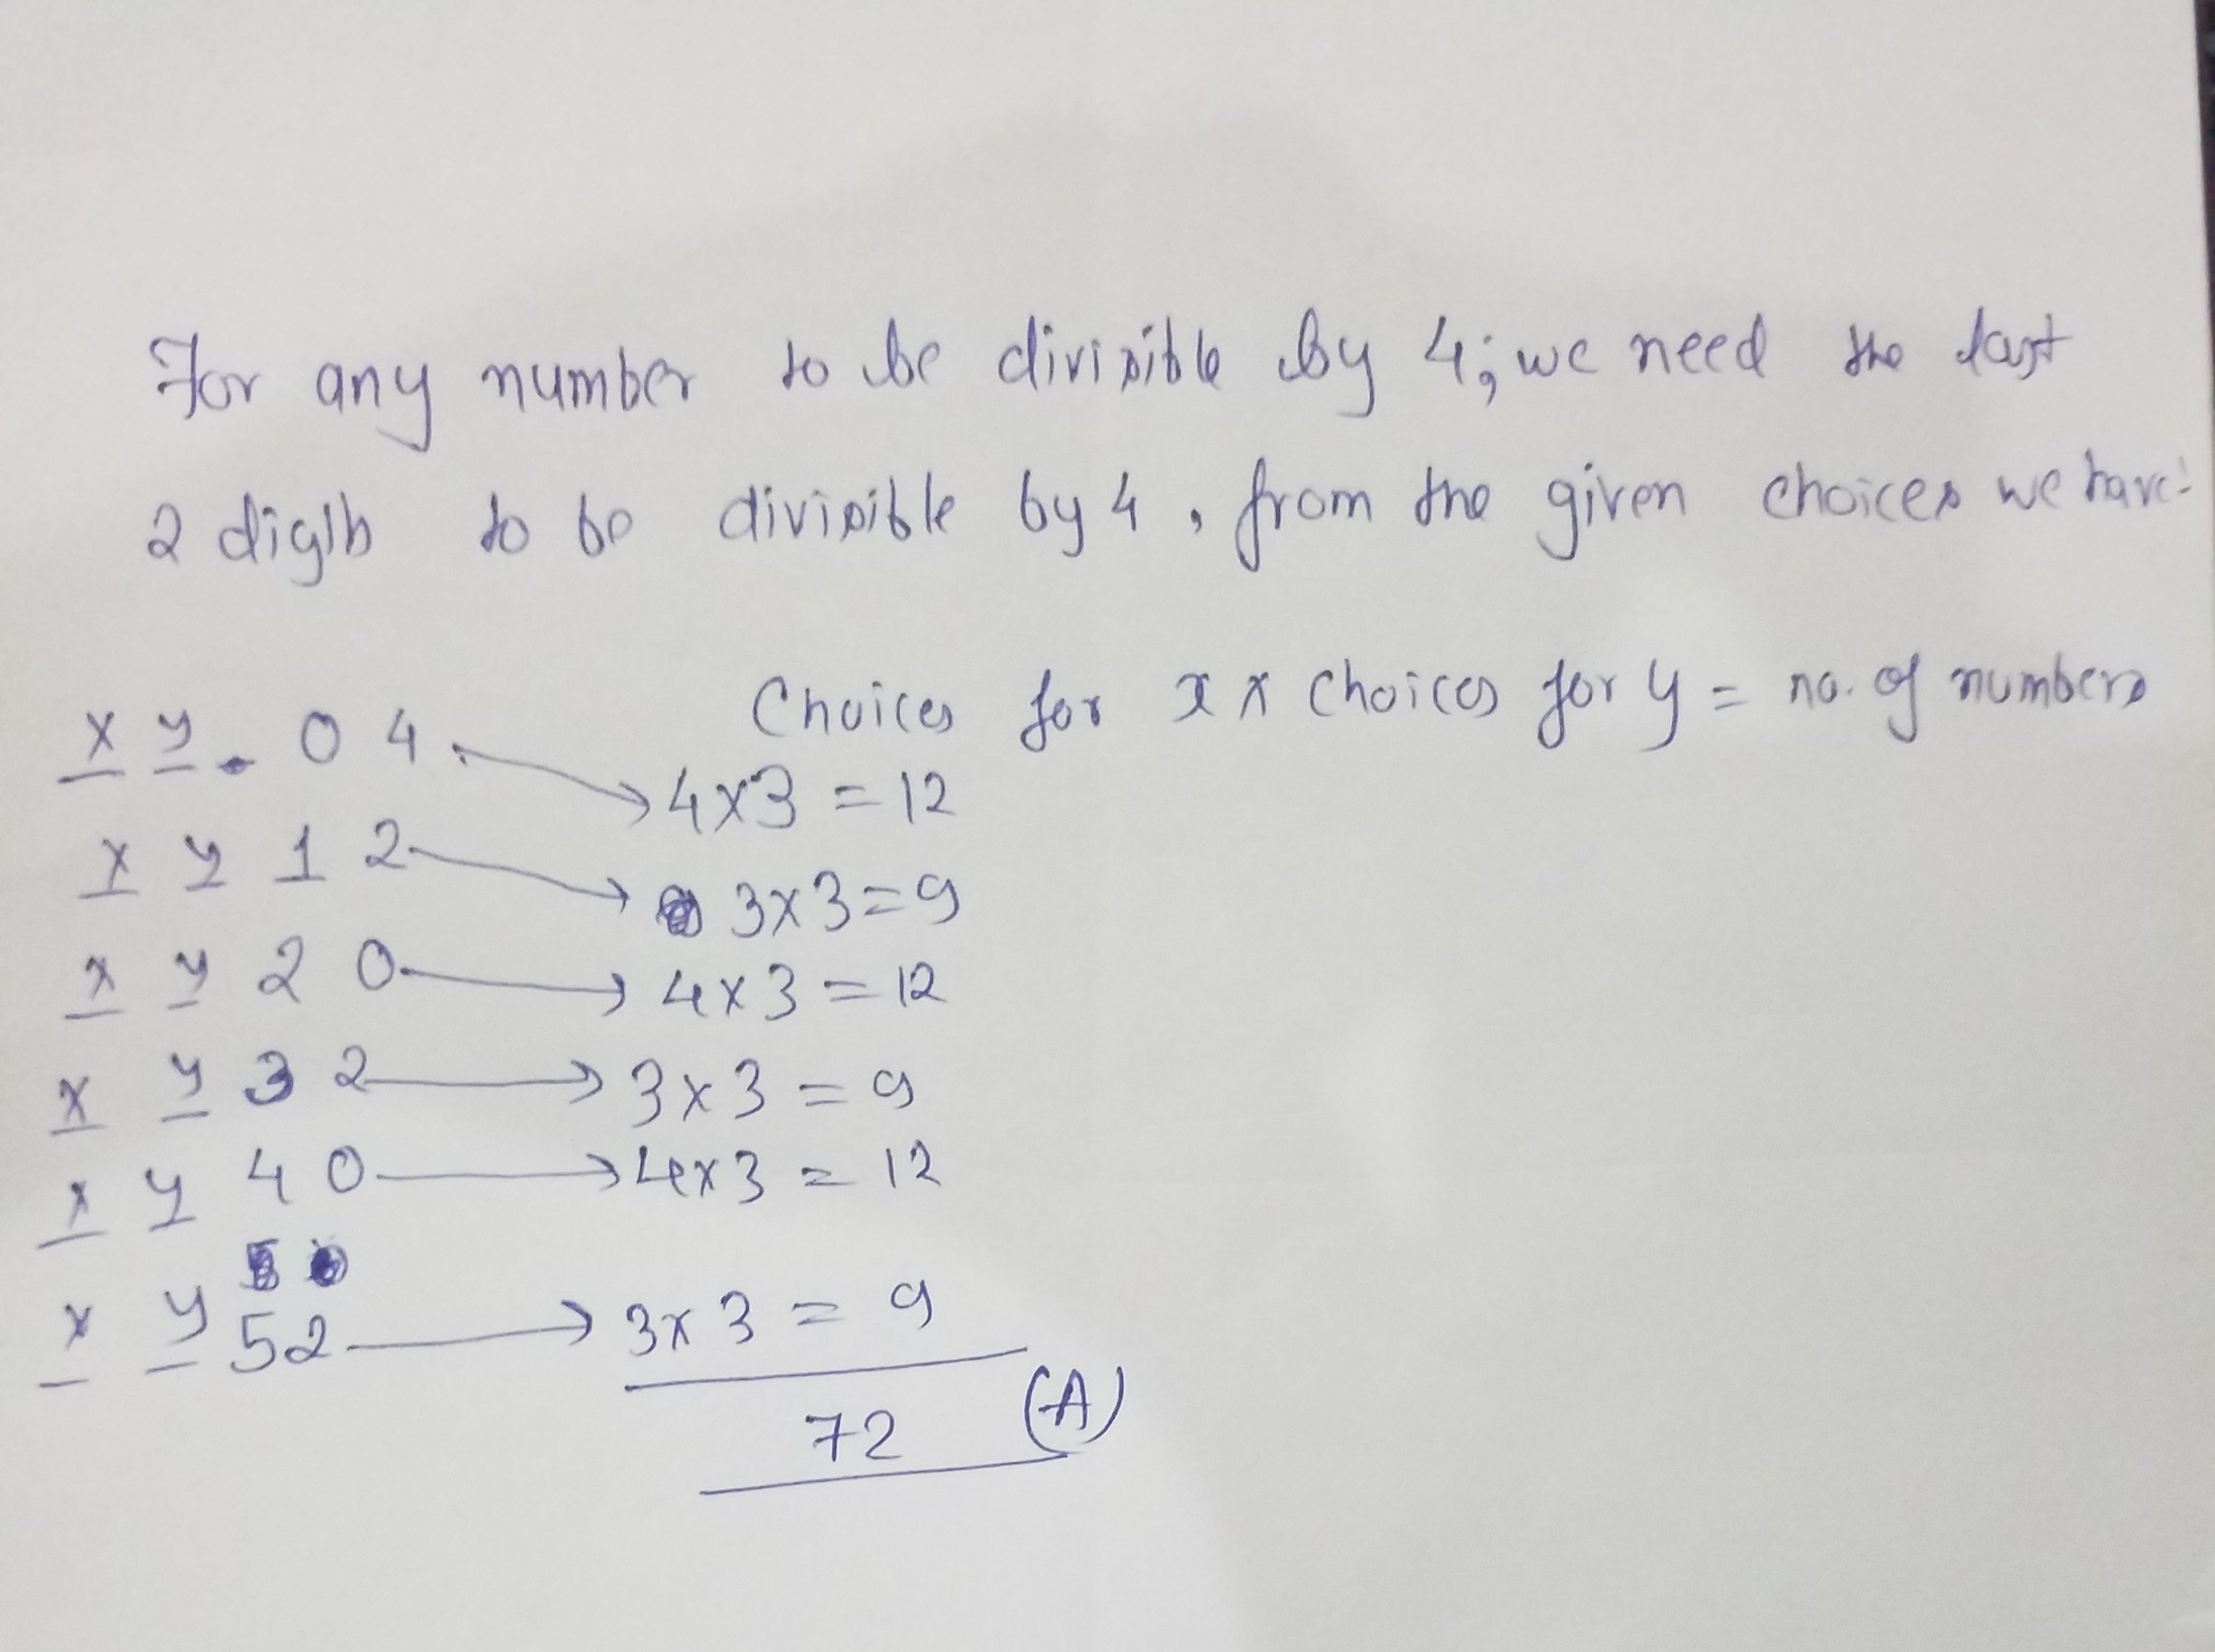 For any number to be divisible by 4; we need the last
2 digits to be divisible by 4, from the given choices we have:
Choices for x × choices for y = no. of numbers
x y 0 4 → 4×3 = 12
x y 1 2 → 3×3=9
x y 2 0 → 4×3 = 12
x y 3 2 → 3×3 = 9
x y 4 0 → 4×3 = 12
x y 52 → 3×3 = 9
72 (A)